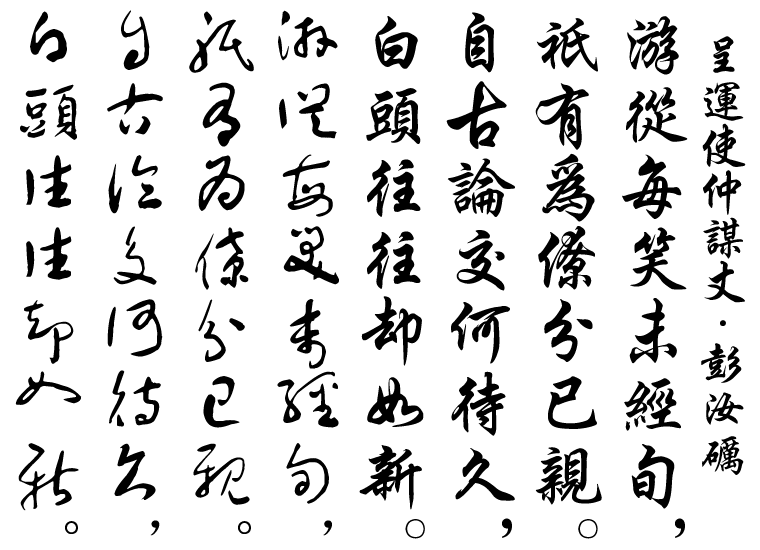 呈運使仲謀丈・彭汝礪
游從每笑未經旬，
祇有爲僚分已親。
自古論交何待久，
白頭往往却如新。
游從每笑未經旬，
祇有爲僚分已親。
自古論交何待久，
白頭往往却如新。